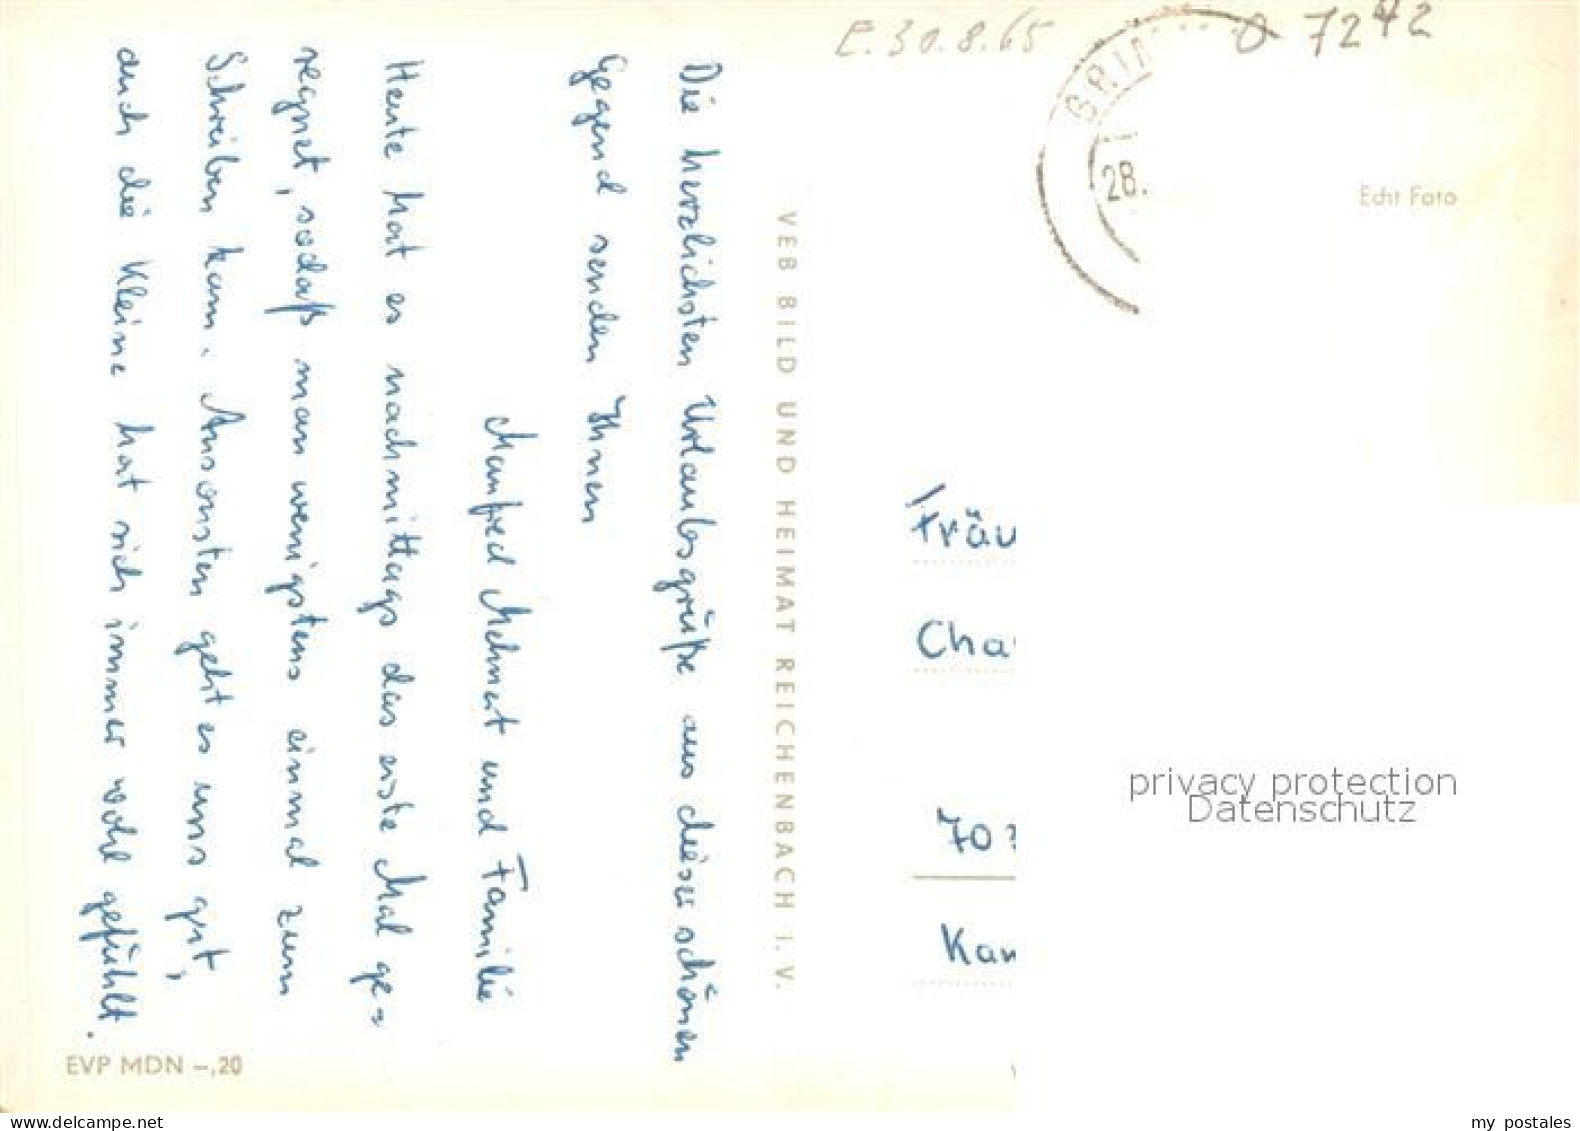 E. 30.8.65
0 7242
GRIM
28.
Echt Foto
Die herzlichsten Urlaubsgrüße aus dieser schönen
Gegend senden Ihnen
Manfred Mehnert und Familie
Heute hat es nachmittags das erste Mal ge=
regnet, sodaß man wenigstens einmal zum
Schreiben kam. Ansonsten geht es uns gut,
auch die Kleine hat sich immer wohl gefühlt.
VEB BILD UND HEIMAT REICHENBACH I. V.
EVP MDN –,20
Fräu
Cha
703
Kar
privacy protection
Datenschutz
my postales